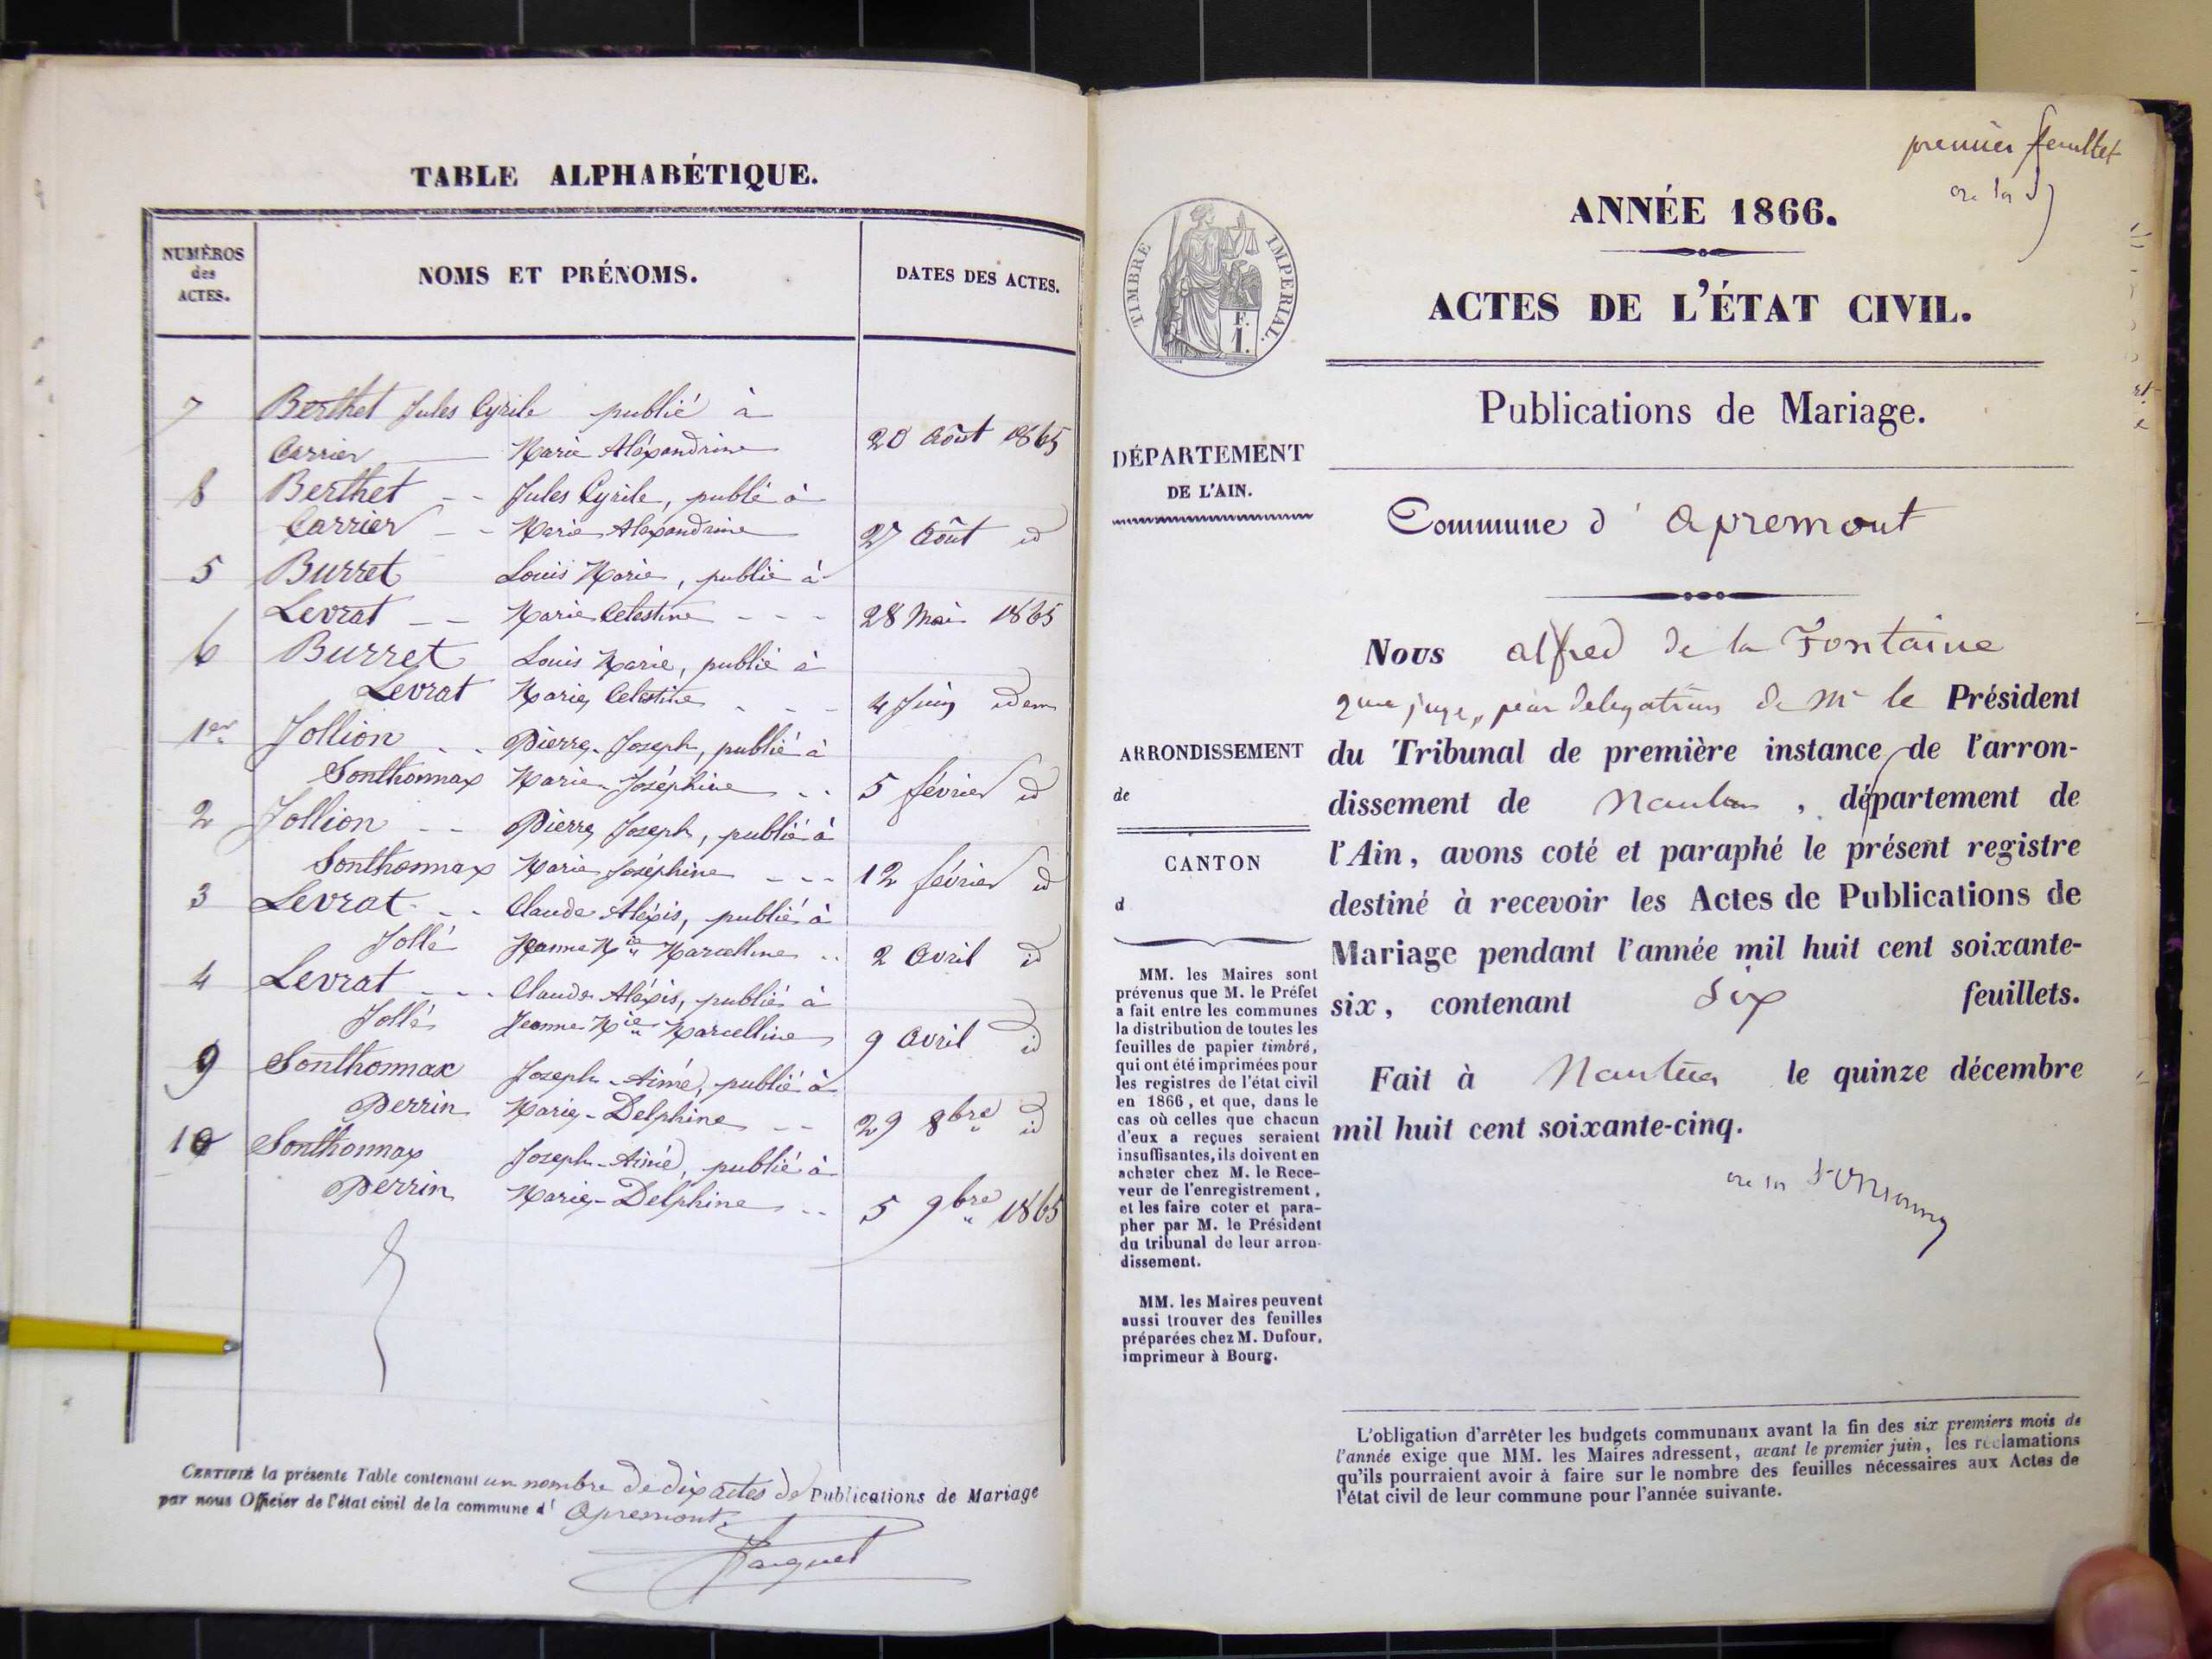 TABLE ALPHABÉTIQUE.
NUMÉROS
des
ACTES.
NOMS ET PRÉNOMS.
DATES DES ACTES.
7 Berthet Jules Cyrile publié à
Carrier Marie Aléxandrine 20 Août 1865
8 Berthet -- Jules Cyrile, publé à
Carrier -- Marie Alexandrine 27 Août id
5 Burret Louis Marie, publié à
Levrat -- Marie Celestine --- 28 Mai 1865
6 Burret Louis Marie, publié à
Levrat Marie, Celestine --- 4 Juin idem
1er Jollion -- Pierre-Joseph, publié à
Sonthonnax Marie-Joséphine -- 5 février id
2 Jollion -- Pierre, Joseph, publié à
Sonthonnax Marie Joséphine --- 12 février id
3 Levrat -- Claude Aléxis, publié à
Jollé Jeanne Mie Marcelline -- 2 Avril id
4 Levrat --- Claude Aléxis, publié à
Jollé Jeanne Mie Marcelline 9 Avril id
9 Sonthonnax Joseph-Aimé, publié à
Perrin Marie-Delphine -- 29 8bre id
10 Sonthonnax Joseph-Aimé, publié à
Perrin Marie-Delphine -- 5 9bre 1865
CERTIFIÉ la présente Table contenant un nombre de dix actes de Publications de Mariage
par nous Officier de l'état civil de la commune d' Apremont.
premier feuillet
ANNÉE 1866.
ACTES DE L'ÉTAT CIVIL.
TIMBRE IMPERIAL.
F.
1.
Publications de Mariage.
DÉPARTEMENT
DE L'AIN.
Commune d' Apremont
Nous alfred de la Fontaine
juge, par délégation de Mr le Président
du Tribunal de première instance de l'arron-
dissement de Nantua, département de
l'Ain, avons coté et paraphé le présent registre
destiné à recevoir les Actes de Publications de
Mariage pendant l'année mil huit cent soixante-
six, contenant Six feuillets.
Fait à Nantua le quinze décembre
mil huit cent soixante-cinq.
ARRONDISSEMENT
de
CANTON
d
MM. les Maires sont
prévenus que M. le Préfet
a fait entre les communes
la distribution de toutes les
feuilles de papier timbré,
qui ont été imprimées pour
les registres de l'état civil
en 1866, et que, dans le
cas où celles que chacun
d'eux a reçues seraient
insuffisantes, ils doivent en
acheter chez M. le Rece-
veur de l'enregistrement,
et les faire coter et para-
pher par M. le Président
du tribunal de leur arron-
dissement.
MM. les Maires peuvent
aussi trouver des feuilles
préparées chez M. Dufour,
imprimeur à Bourg.
L'obligation d'arrêter les budgets communaux avant la fin des six premiers mois de
l'année exige que MM. les Maires adressent, avant le premier juin, les réclamations
qu'ils pourraient avoir à faire sur le nombre des feuilles nécessaires aux Actes de
l'état civil de leur commune pour l'année suivante.